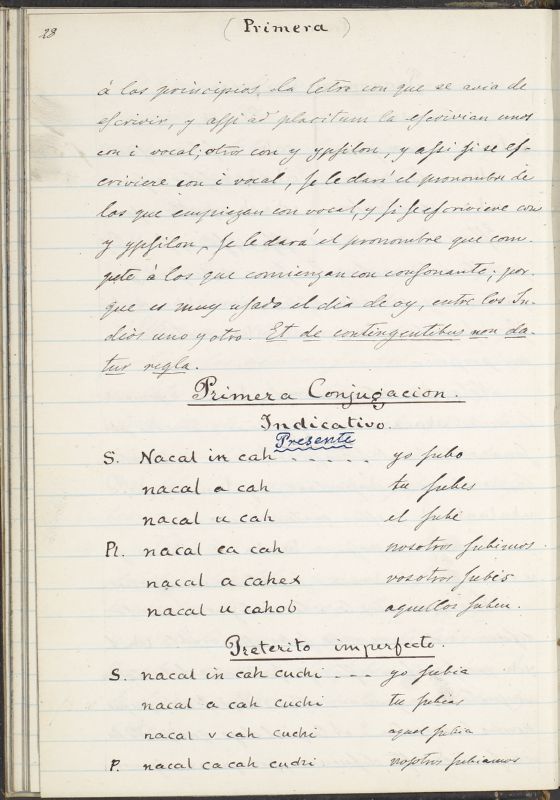 28
( Primera )
á los principios, la letra con que se avia de
escrivir, y assi ad placitum la escrivian unos
con i vocal; otros con y ypsilon, y assi si se es-
criviere con i vocal, se le dará el pronombre de
los que empiezan con vocal, y si se escriviere con
y ypsilon, se le dará el pronombre que com-
pete á los que comienzan con consonante; por-
que es muy usado el dia de oy, entre los In-
dios uno y otro. Et de contingentibus non da-
tur regla.
Primera Conjugacion.
Indicativo.
Presente
S. Nacal in cah - - - - - yo subo
nacal a cah tu subes
nacal u cah el sube
Pl. nacal ca cah nosotros subimos.
nacal a cahex vosotros subís
nacal u cahob aquellos suben.
Preterito imperfecto.
S. nacal in cah cuchi - - - yo subia
nacal a cah cuchi tu subias
nacal v cah cuchi aquel subia
P. nacal ca cah cuchi nosotros subiamos